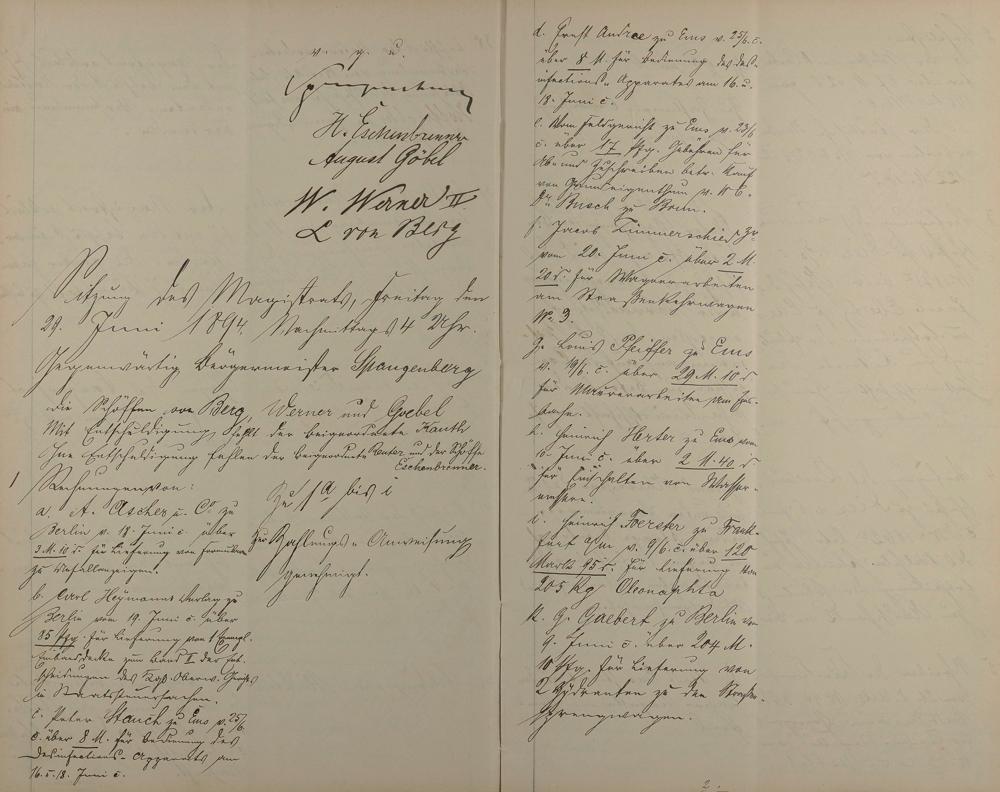 v. g. u.
Spangenberg
H. Eschenbrenner
August Göbel
W. Werner II
L von Berg
Sitzung des Magistrats, Freitag den
29. Juni 1894. Nachmittags 4 Uhr.
Gegenwärtig Bürgermeister Spangenberg
die Schöffen von Berg, Werner und Goebel
Mit Entschuldigung fehlt der Beigeordnete Kauth
Ohne Entschuldigung fehlen der Beigeordnete Reuter und der Schöffe
Eschenbrenner.
1
Rechnungen von:
a. A. Ascher u. Co zu
Berlin v. 18. Juni c. über
3 M. 10 d. für Lieferung von Formularen
zu Unfallanzeigen.
b. Carl Heymanns Verlag zu
Berlin vom 19. Juni c. über
85 Pfg. für Lieferung von 1 Exempl.
Einbanddecke zum Band II der Ent-
scheidungen des Kgl. Oberverw. Gerichts
in Staatssteuersachen.
c. Peter Stauch zu Ems v. 25/6.
c. über 8 M. für Bedienung des
Desinfections-Apparats am
16. u. 18. Juni c.
Zu 1a bis i
Zur Zahlungs-Anweisung
genehmigt.
d. Ernst Andree zu Ems v. 25/6. c.
über 8 M. für Bedienung des Des-
infections-Apparates am 16. u.
18. Juni c.
e. Vom Feldgericht zu Ems v. 23/6
c. über 17 Pfg. Gebühren für
Ab- und Zuschreiben betr. Kauf
von Grundeigenthum v.
Dr. Busch zu Bonn.
f. Jacob Zimmerschied
vom 20. Juni c. über 2 M.
20 d. für Wagnerarbeiten
am Straßenkehrwagen
No 3.
g. Louis Pfeiffer zu Ems
v. 19/6. c. über 29 M. 10 d
für Maurerarbeiten am
h. Heinrich Herter zu Ems vom
Juni c. über 2 M. 40 d
für Einschalten von Wasser-
messern.
i. Heinrich Foerster zu Frank-
furt a/m v. 9/6. c. über 120
Mark 95 d. für Lieferung von
205 Kg Oleonaphta
k. G. Gaebert zu Berlin vom
9. Juni c. über 204 M.
10 Pfg. für Lieferung von
2 Hydranten zu den Straßen-
sprengwagen.
2.